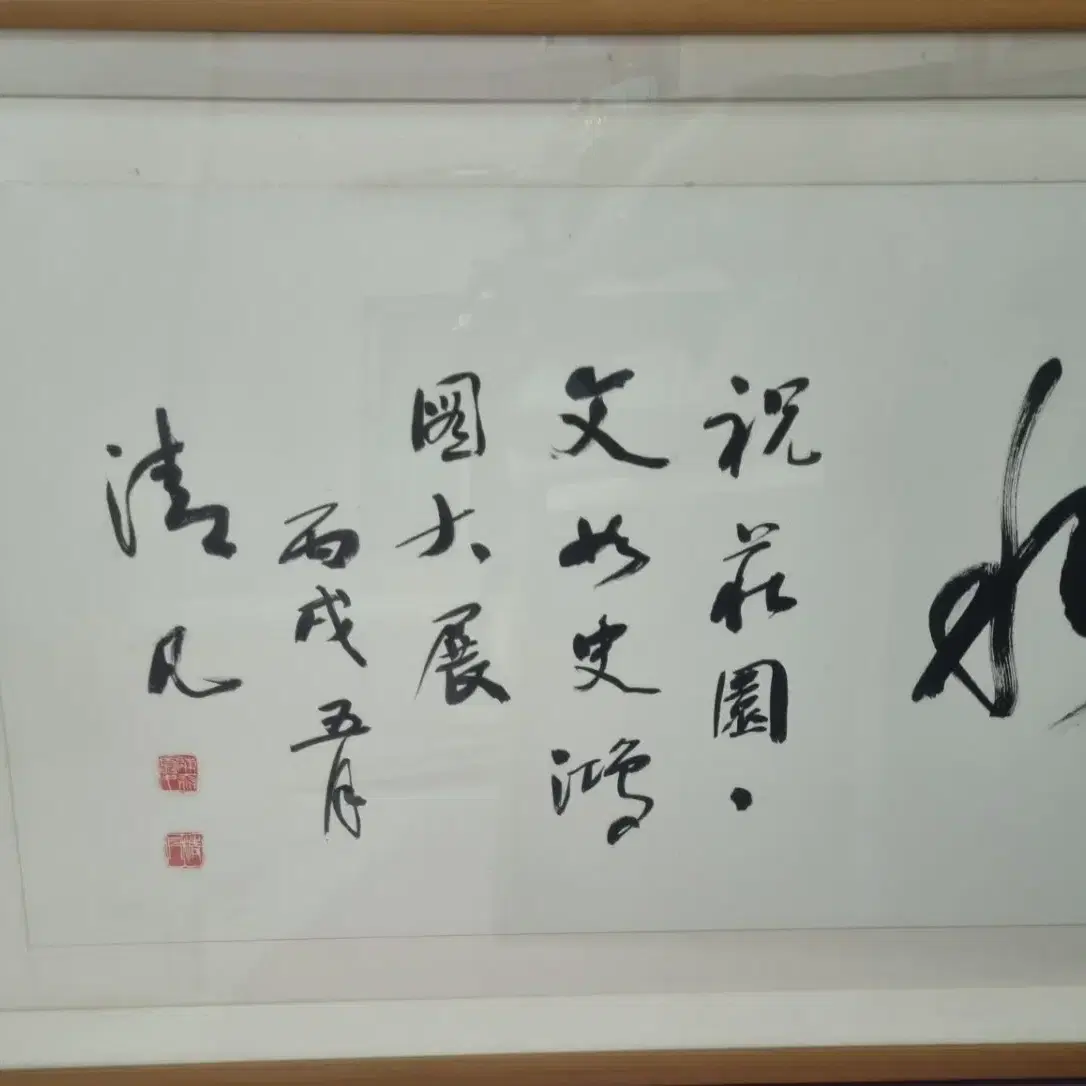 祝莊園·
文如史鴻
圖大展
丙戌五月
清凡